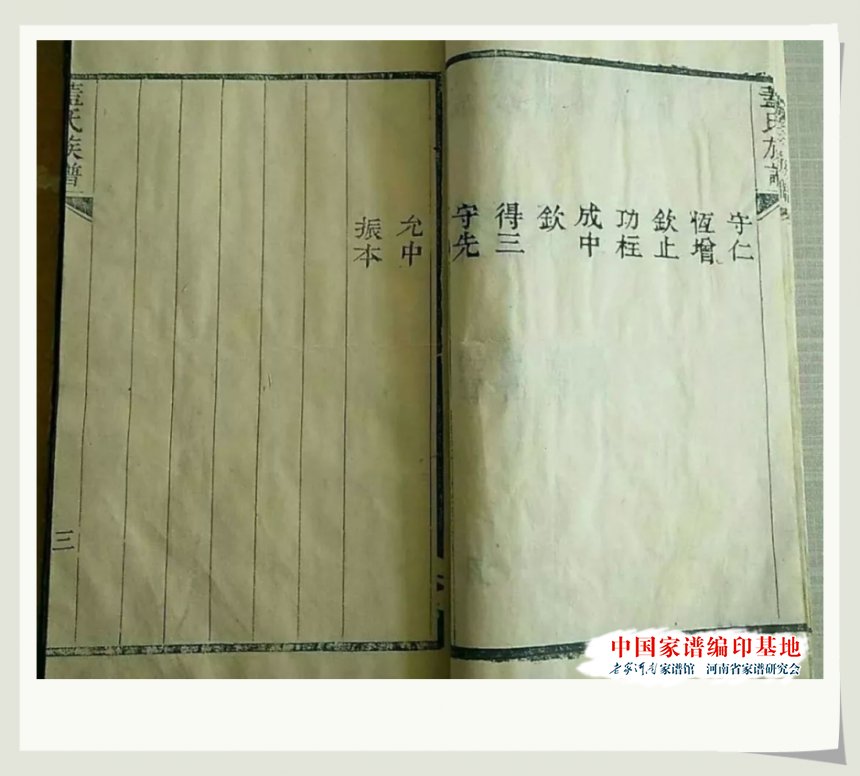 蓋氏族譜
守仁
恆增
欽止
功柱
成中
欽
得三
守先
允中
振本
蓋氏族譜
三
中国家谱编印基地
老家河南家谱馆 河南省家谱研究会